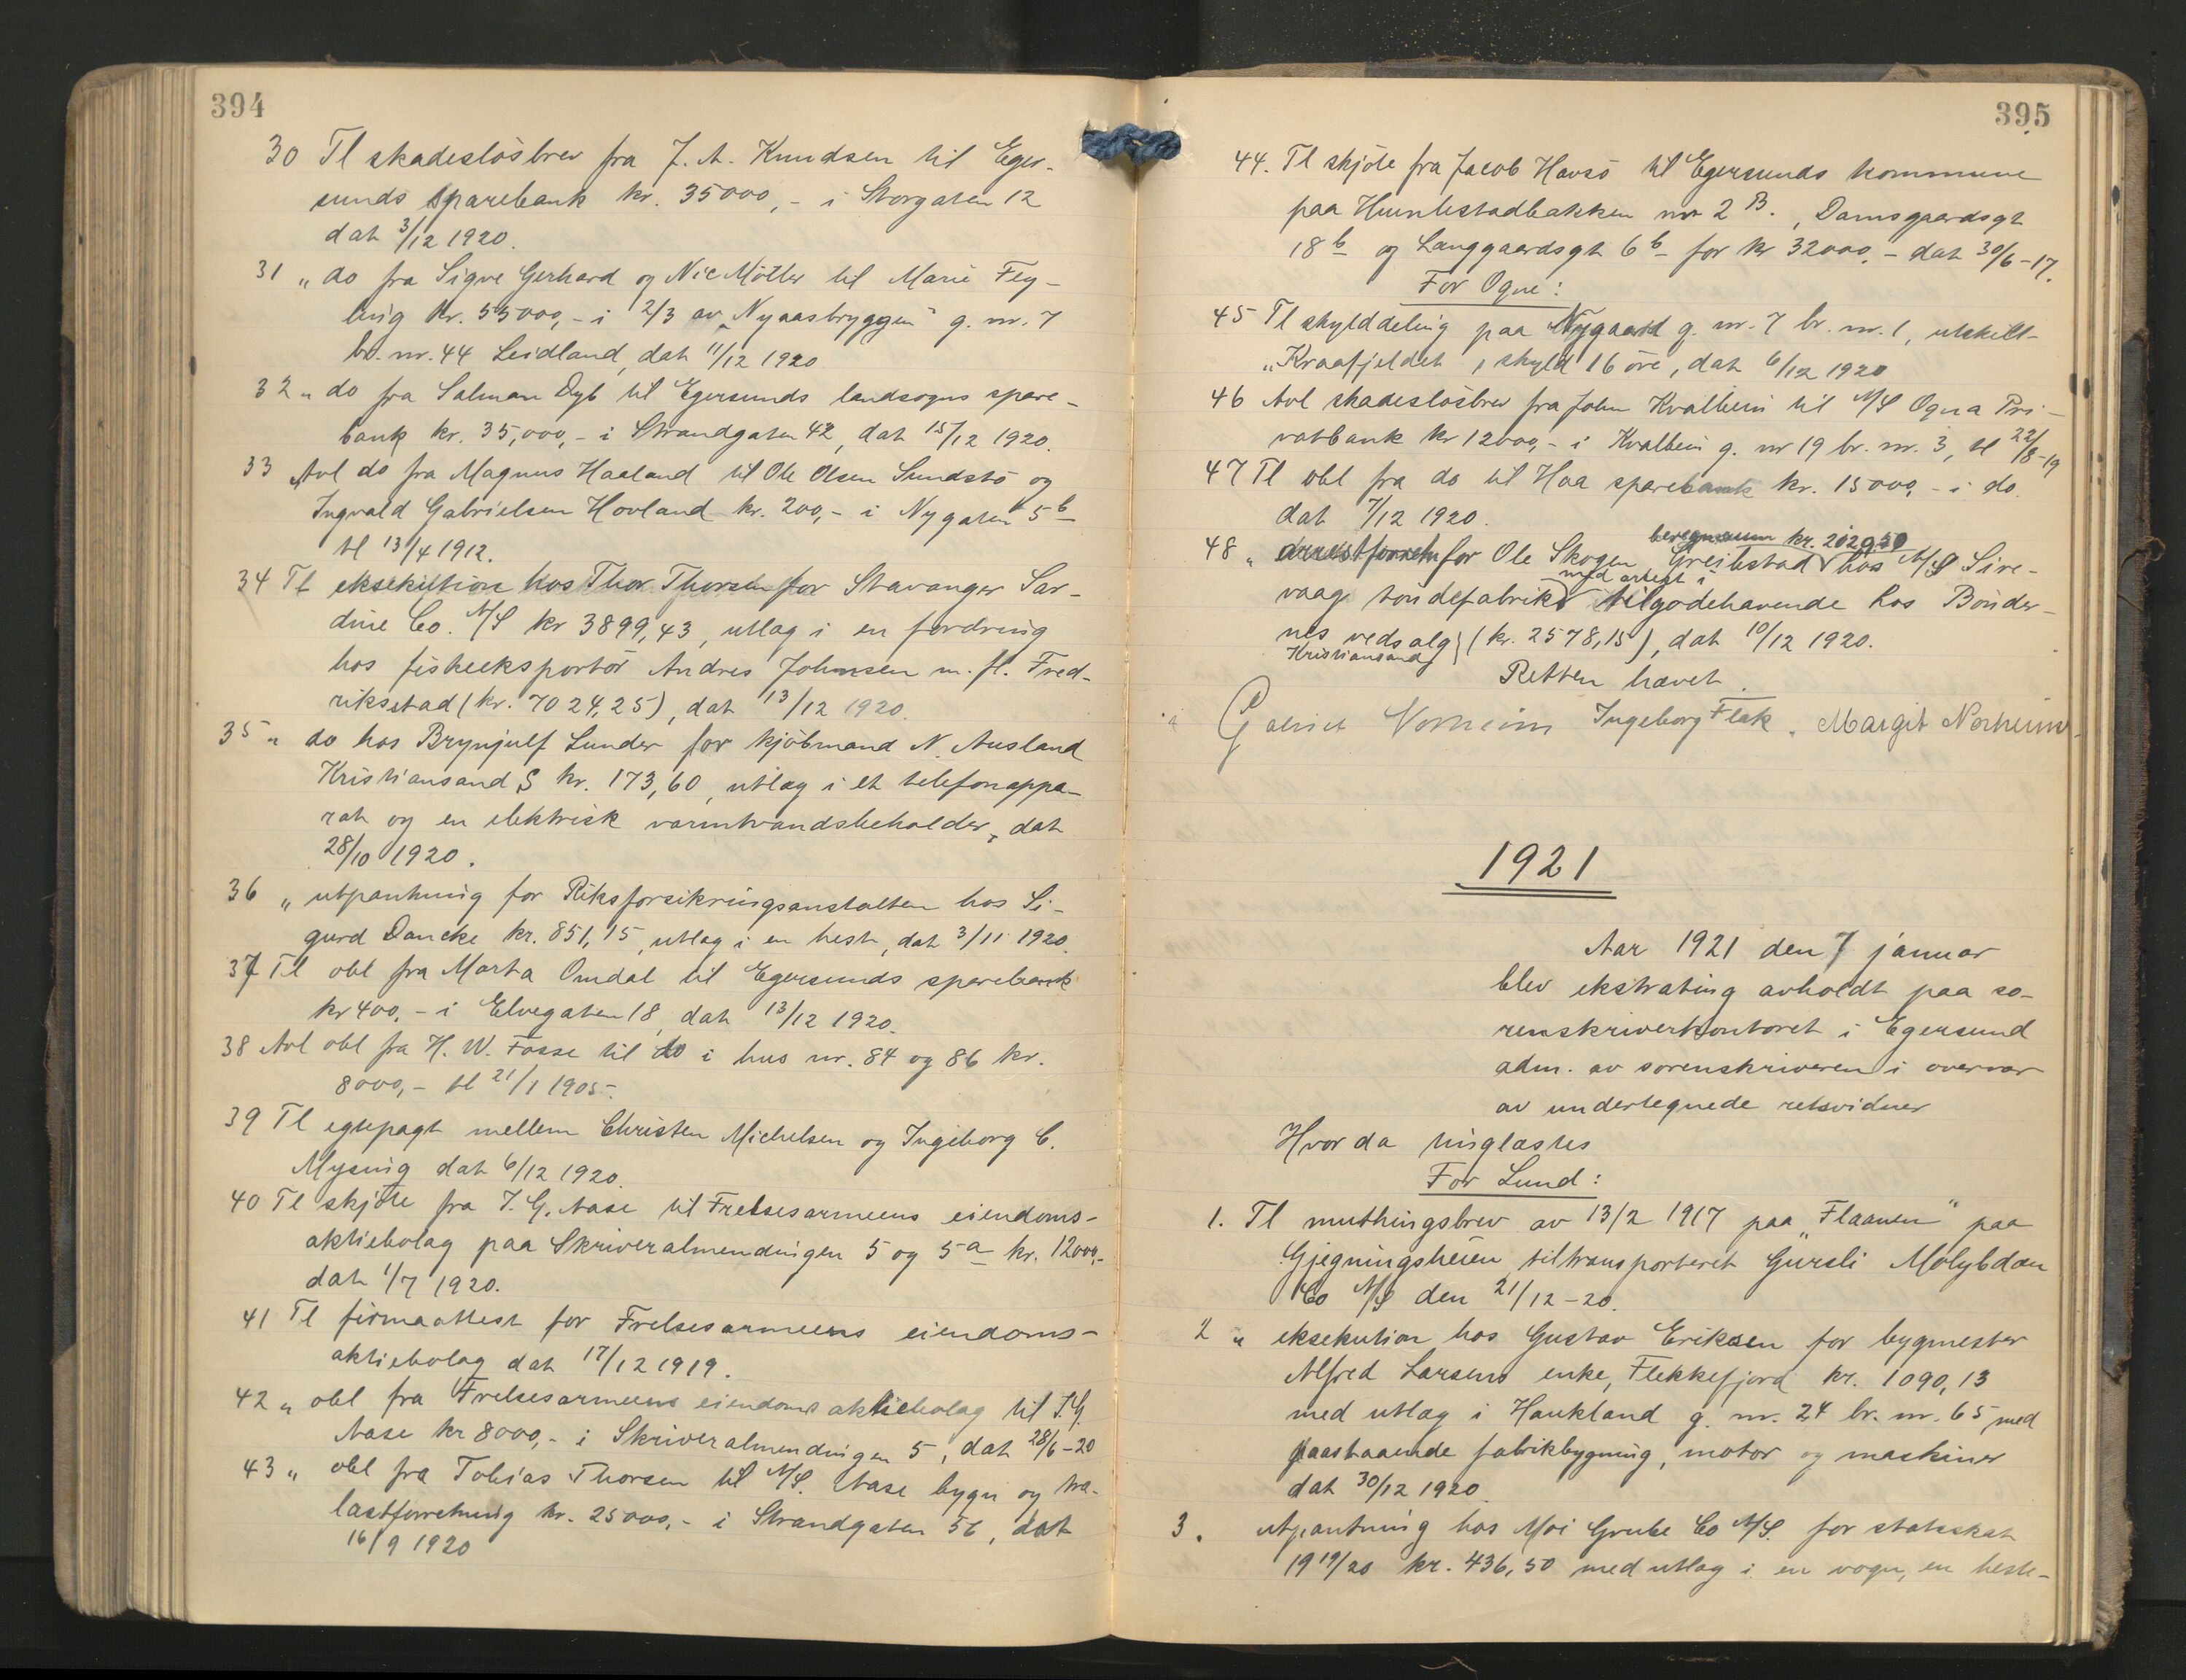 394
30 Tl skadesløsbrev fra J. A. Knudsen til Eger-
sunds sparebank kr. 35000,- i Storgaten 12
dat 3/12 1920.
31 „ do fra Sigve Gerhard og Nic Møller til Marie Fey-
ling kr. 55000,- i 2/3 av „Nyaasbryggen" g. nr. 7
br. nr. 44 Leidland, dat 11/12 1920
32 „ do fra Salman Dyb til Egersunds landsogns spare-
bank kr. 35,000,- i Strandgaten 42, dat 15/12 1920.
33 Avl do fra Magnus Haaland til Ole Olsen Sundstø og
Ingvald Gabrielsen Hovland kr. 200,- i Nygaten 5b
tl 13/4 1912.
34 Tl eksekution hos Thor Thorsen for Stavanger Sar-
dine Co. A/S kr 3899,43, utlag i en fordring
hos fiskeeksportør Andres Johnsen m. fl. Fred-
riksstad (kr. 7024,25), dat 13/12 1920.
35 „ do hos Brynjulf Lunder for kjøbmand N. Ausland
Kristiansand S kr. 173,60, utlag i et telefonappa-
rat og en elektrisk varmtvandsbeholder, dat
28/10 1920.
36 „ utpantning for Riksforsikringsanstalten hos Si-
gurd Dancke kr. 851,15, utlag i en hest, dat 3/11 1920.
37 Tl obl fra Marta Omdal til Egersunds sparebank
kr 400,- i Elvegaten 18, dat 13/12 1920.
38 Avl obl fra H. W. Fosse til do i hus nr. 84 og 86 kr.
8000,- tl 21/1 1905.
39 Tl egtepagt mellem Christen Michelsen og Ingeborg C.
Mysing dat 6/12 1920.
40 Tl skjøte fra J. G. Aase til Frelsesarmeens eiendoms-
aktiebolag paa Skriveralmendingen 5 og 5a kr. 12000,-
dat 1/7 1920.
41 Tl firmaattest for Frelsesarmeens eiendoms-
aktiebolag dat 17/12 1919.
42 „ obl fra Frelsesarmeens eiendoms aktiebolag til J.G.
Aase kr 8000,- i Skriveralmendingen 5, dat 28/6-20
43 „ obl fra Tobias Thorsen til A/S. Aase bygn og tra-
lastforretning kr. 25000,- i Strandgaten 56, dat
16/9 1920
395
44. Tl skjøte fra Jacob Havsø til Egersunds kommune
paa Humlestadbakken nr 2 B., Damsgaardsgt
18b og Langgaardsgt 6b for kr 32000,- dat 30/6-17.
For Ogne:
45 Tl skylddeling paa Nygaard g. nr. 7 br. nr. 1, utskilt
„Kraafjeldet, skyld 16 øre, dat 6/12 1920
46 Avl skadesløsbrev fra John Kvalbein til A/S Ogna Pri-
vatbank kr 12000,- i Kvalbein g. nr 19 br. nr. 3, tl 22/8-19
47 Tl obl fra do til Haa sparebank kr. 15000,- i do.
dat 7/12 1920.
beregnsum kr. 2029,50
48 „ arrestforretn for Ole Skogen Greibstad hos A/S Sire-
med arrest i
vaag tøndefabrik tilgodehavende hos Bønder-
nes vedsalg (kr. 2578,15), dat 10/12 1920.
Kristiansand
Retten hævet.
Gabriel Norheim Ingeborg Flak. Margit Norheim
1921
Aar 1921 den 7 januar
blev ekstrating avholdt paa so-
renskriverkontoret i Egersund
adm. av sorenskriveren i overvær
av undertegnede retsvidner
Hvor da tinglæstes
For Lund:
1. Tl muthingsbrev av 13/2 1917 paa „Flaanen" paa
Gjegningsheien tiltransporteret Gursli Molybdæn
Co A/S den 21/12-20.
2 „ eksekution hos Gustav Eriksen for bygmester
Alfred Larsens enke, Flekkefjord kr. 1090,13
med utlag i Haukland g. nr. 24 br. nr. 65 med
paastaaende fabrikbygning, motor og maskiner
dat 30/12 1920.
3. utpantning hos Moi Grube Co A/S. for statsskat
1919/20 kr. 436,50 med utlag i en vogn, en heste-